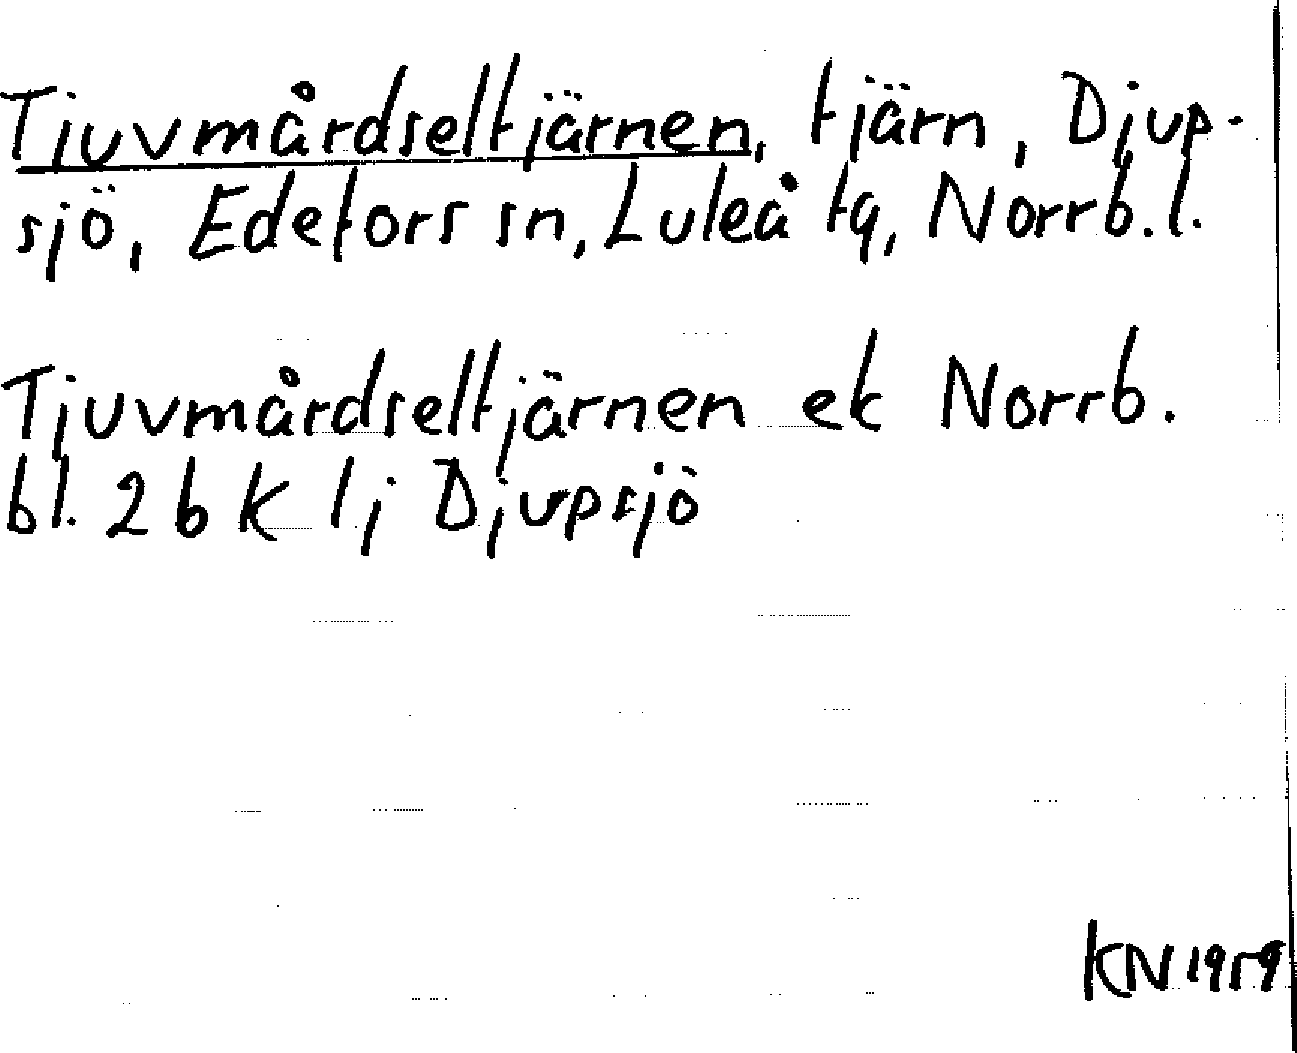 Tjuvmårdseltjärnen, tjärn, Djup-
sjö, Edefors sn, Luleå tg, Norrb.l.
Tjuvmårdseltjärnen ek Norrb.
bl. 26 k lj Djupsjö
KN 1959